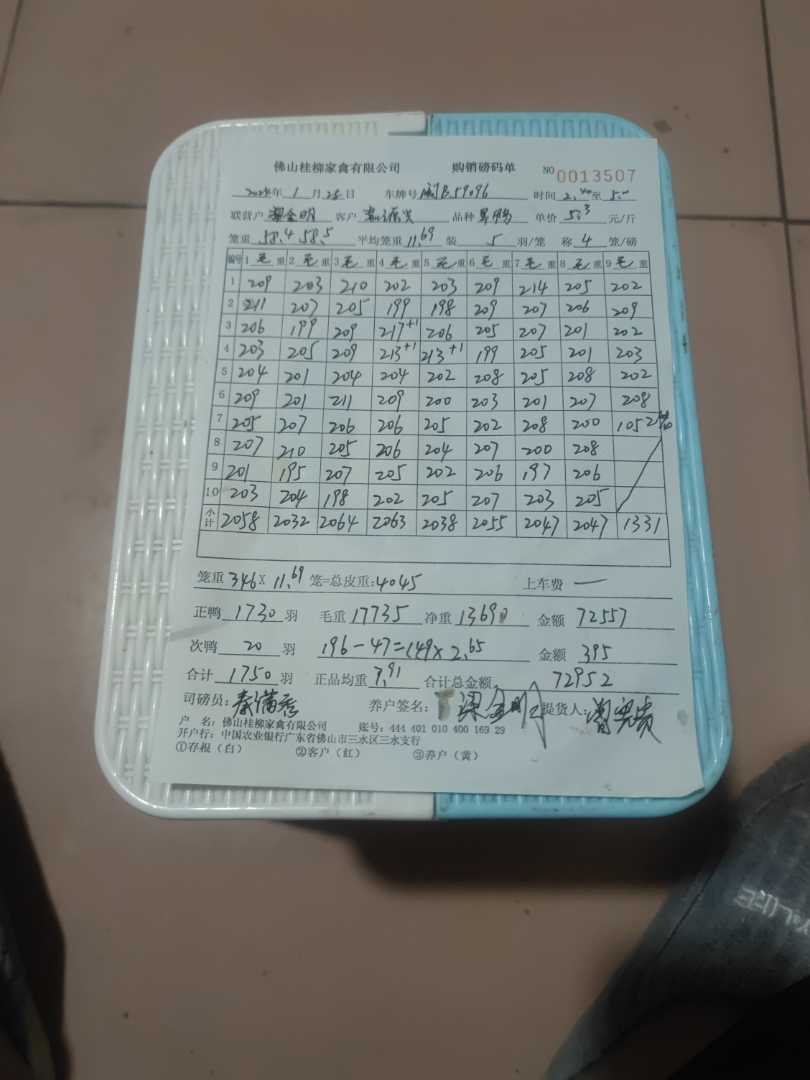 佛山桂柳家禽有限公司 购销磅码单 NO 0013507
年 1 月 25 日 车牌号 闽B.59096 时间 2.40 至 5.00
联营户 梁金明 客户 品种 单价 5.3 元/斤
笼重 58.4 58.5 平均笼重 11.69 装 5 羽/笼 称 4 笼/磅
编号 1 毛 重 2 毛 重 3 毛 重 4 毛 重 5 毛 重 6 毛 重 7 毛 重 8 毛 重 9 毛 重
1 209 203 210 202 203 209 214 205 202
2 211 207 205 199 198 209 207 206 209
3 206 199 209 217+1 206 205 207 201 202
4 203 205 209 213+1 213+1 199 205 201 203
5 204 201 204 204 202 208 205 208 202
6 209 201 211 209 200 203 201 207 208
7 205 207 206 206 205 202 208 200 105 2笼
8 207 210 205 206 204 207 200 208
9 201 195 207 205 202 206 197 206
10 203 204 198 202 205 207 203 205
小计 2058 2032 2064 2063 2038 2055 2047 2047 1331
笼重 346 × 11.69 笼=总皮重: 4045 上车费 一
正鸭 1730 羽 毛重 17735 净重 13690 金额 72557
次鸭 20 羽 196-47=149×2.65 金额 395
合计 1750 羽 正品均重 7.91 合计总金额 72952
司磅员: 秦满秀 养户签名: 梁金明 提货人:
户 名: 佛山桂柳家禽有限公司 账号: 444 401 010 400 169 29
开户行: 中国农业银行广东省佛山市三水区三水支行
①存根(白) ②客户(红) ③养户(黄)